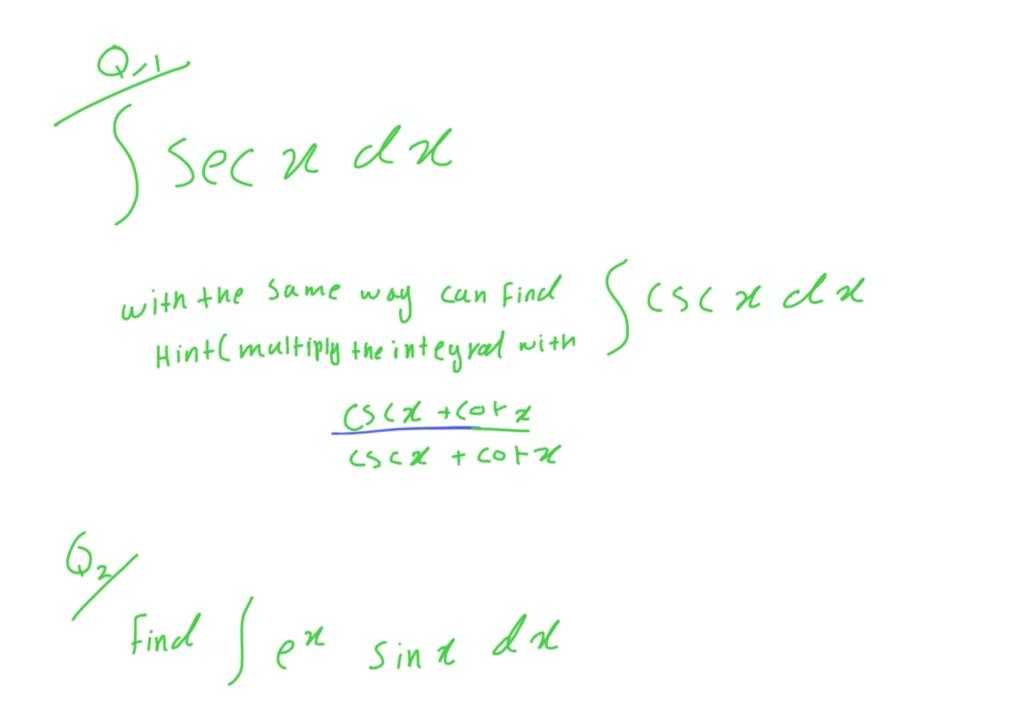 Q,1
∫ sec x dx
with the same way can find ∫ csc x dx
Hint( multiply the integral with
csc x + cot x
csc x + cot x
Q2
Find ∫ e^x sin x dx